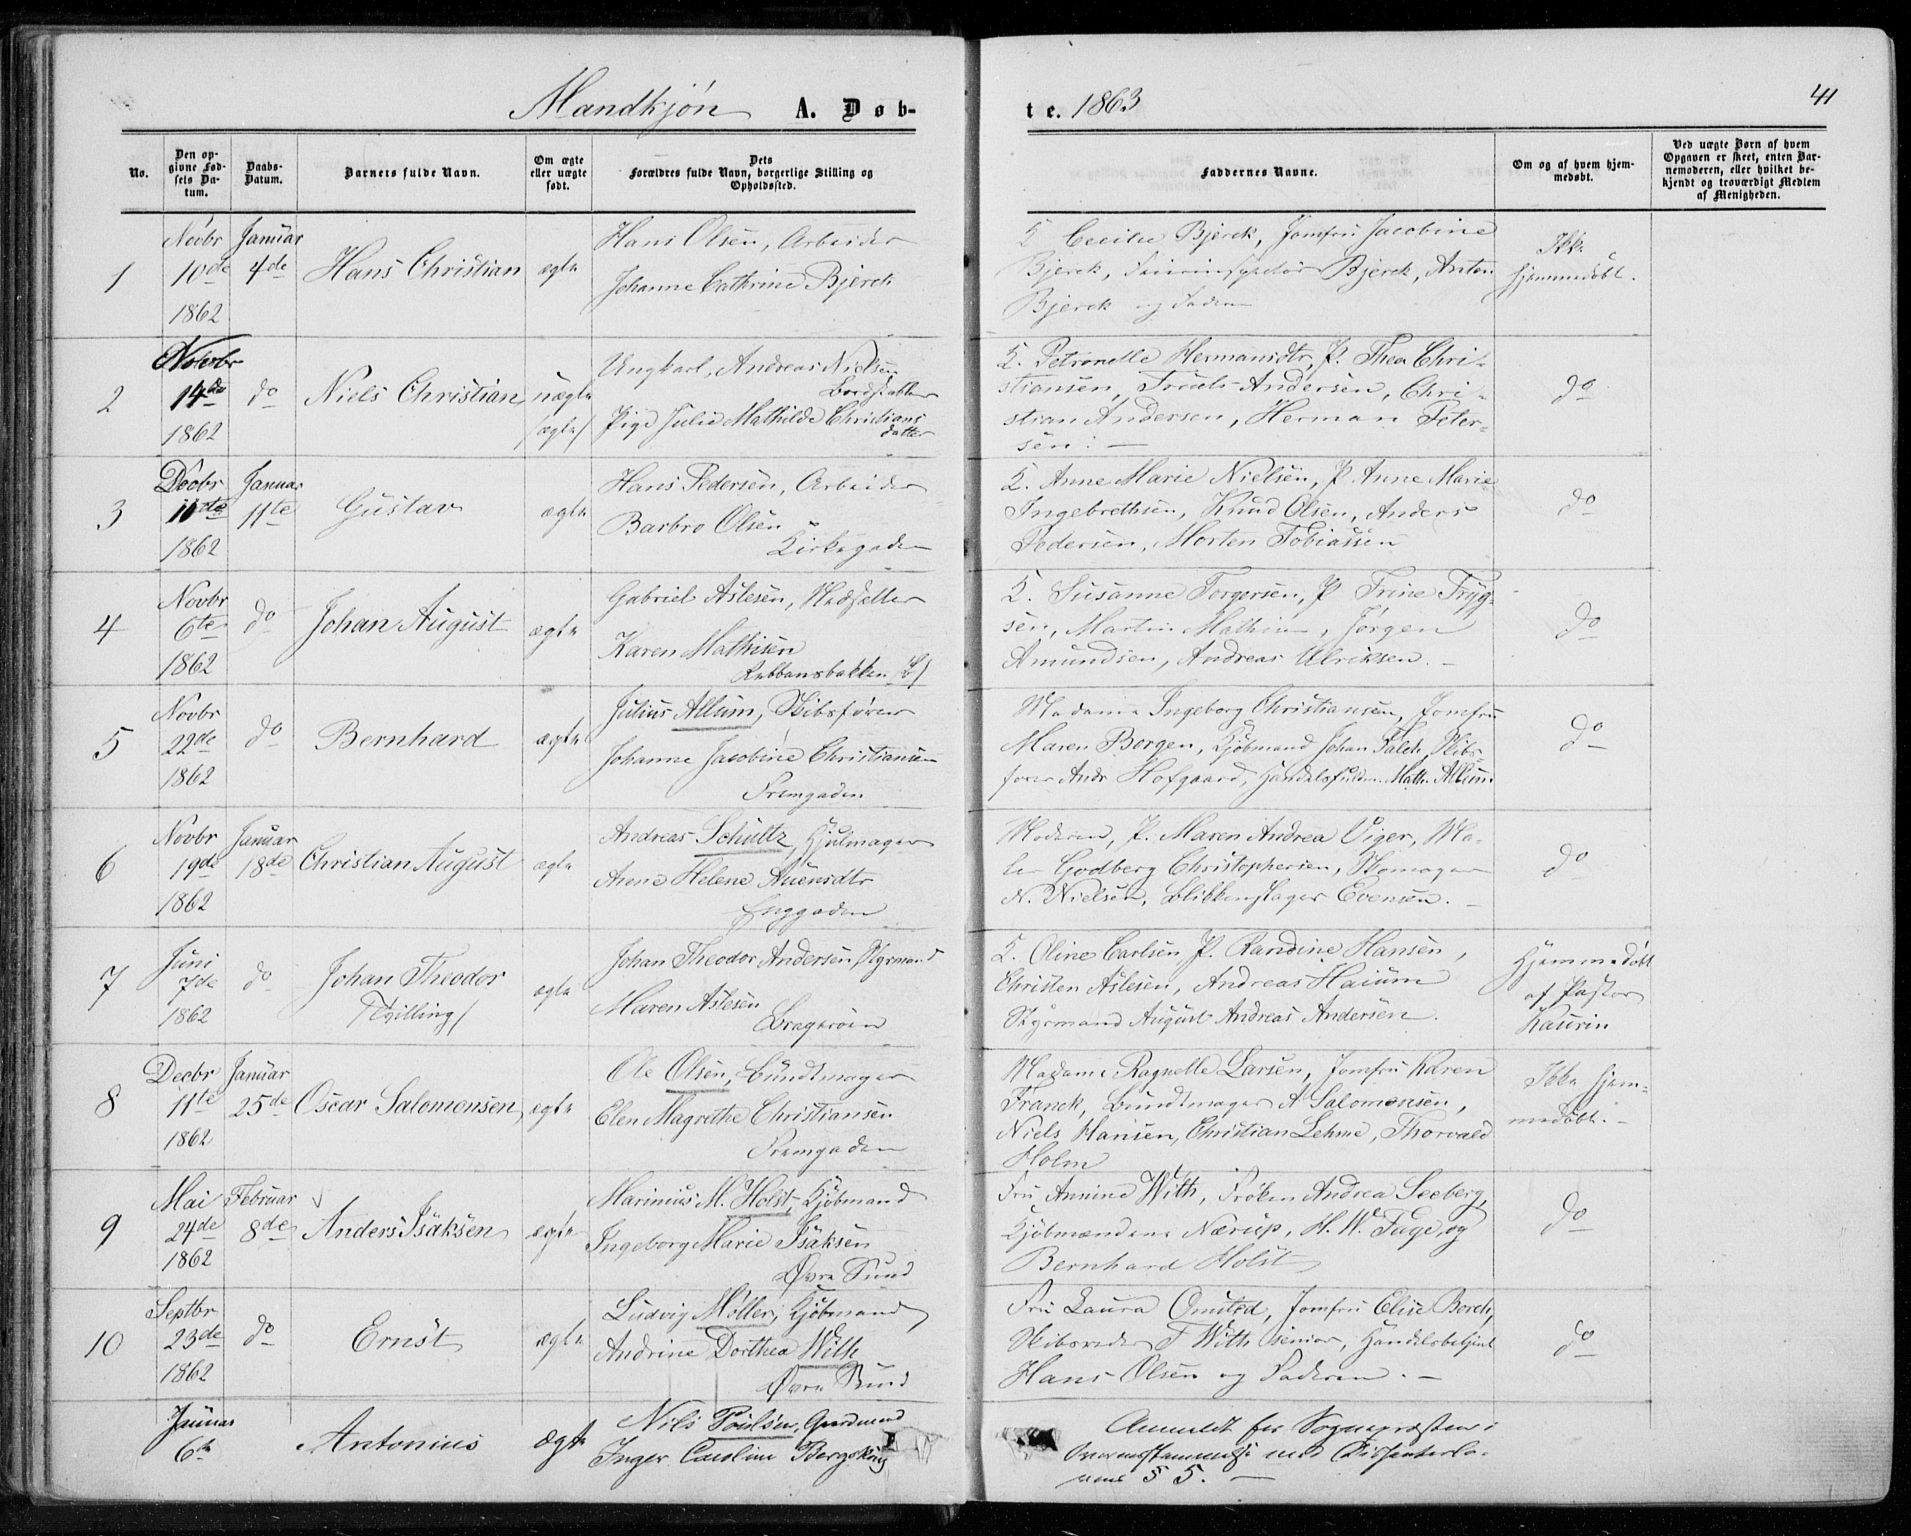 Mandkjøn A. Døb-
te. 1863
41
No.
Den op-
givne Fød-
sels Da-
tum.
Daabs-
Datum.
Barnets fulde Navn.
Om ægte
eller uægte
født.
Dets
Forældres fulde Navn, borgerlige Stilling og
Opholdssted.
Faddernes Navne.
Om og af hvem hjem-
medøbt.
Ved uægte Børn af hvem
Opgaven er skeet, enten Bar-
nemoderen, eller hvilket be-
kjendt og troværdigt Medlem
af Menigheden.
1
Novbr
10de
1862
Januar
4de
Hans Christian
ægte
Hans Olsen, Arbeider
Johanne Cathrine Bjerck
K Cecilie Bjerck, Jomfru Jacobine
Bjerck, Bjerck, Anton
Bjerck og Faderen
Ikke
hjemmedøbt.
2
Novbr
14de
1862
do
Niels Christian
uægte
/ægte/
Ungkarl, Andreas Nielsen
Bordstabler
Pige Julie Mathilde Christians
datter
K. Petronelle Hermansdtr, P. Thea Chri-
stiansen, Truels Andersen, Chri-
stian Andersen, Herman Peter-
sen. —
do
3
Decbr
10de
1862
Januar
11te
Gustav
ægte
Hans Pedersen, Arbeider
Barbro Olsen
Kirkegaden
K. Anne Marie Nielsen, P. Anne Marie
Ingebrethsen, Knud Olsen, Anders
Pedersen, Morten Tobiassen
do
4
Novbr
6te
1862
do
Johan August
ægte
Gabriel Aslesen,
Karen Mathisen
Rebbansbakken
K. Susanne Torgersen, P Trine Tryg-
sen, Martin Mathisen, Jørgen
Amundsen, Andreas Ulriksen. —
do
5
Novbr
22de
1862
do
Bernhard
ægte
Julius Allum, Skibsfører
Johanne Jacobine Christiansen
Fremgaden
Madame Ingeborg Christiansen, Jomfru
Maren Borgen, Kjøbmand Johan Falch, Skibs-
fører Andr Hofgaard, Math. Allum.
do
6
Novbr
19de
1862
Januar
18de
Christian August
ægte
Andreas Schultz, Hjulmager
Anne Helene Auensdtr
Enggaden
Moderen, P. Maren Andrea Viger, Ma-
ler Godberg Christophersen, Skomager
N. Nielsen, Blikkenslager Evensen. —
do
7
Juni
7de
1862
do
Johan Theodor
/Tvilling/
ægte
Johan Theodor Andersen, Styrmand
Maren Aslesen
Bragerøen
K. Oline Carlsen, P. Randine Hansen,
Christen Aslesen, Andreas Haium
Styrmand August Andreas Andersen.
Hjemmedøbt
af Pastor
Kaurin
8
Decbr
11te
1862
Januar
25de
Oscar Salomonsen
ægte
Ole Olsen, Bundtmager
Elen Magrethe Christiansen
Fremgaden
Madame Ragnelle Larsen, Jomfru Karen
Franck, Bundtmager A Salomonsen,
Niels Hansen, Christian Lehme, Thorvald
Holm
Ikke hjem-
medøbt. —
9
Mai
24de
1862
Februar
8de
Anders Isaksen
ægte
Marinius M. Holst, Kjøbmand
Ingeborg Marie Isaksen
Øvre Sund
Fru Annine With, Frøken Andrea Seeberg,
Kjøbmændene Nærup, H. W. Tuge, og
Bernhard Holst
do
10
Septbr
23de
1862
do
Ernst
ægte
Ludvig Møller, Kjøbmand
Andrine Dorthea With
Øvre Sund
Fru Laura Omsted, Jomfru Elise Borch,
Skibsreder T With senior, Handelsbetjent
Hans Olsen og Faderen. —
do
Januar
6te
Antonius
ægte
Nils Poulsen, Gaardmand
Inger Caroline Bergskaug
Anmeldt for Sognepræsten i
Overensstemmelse med Dissenterlo-
vens § 5. —